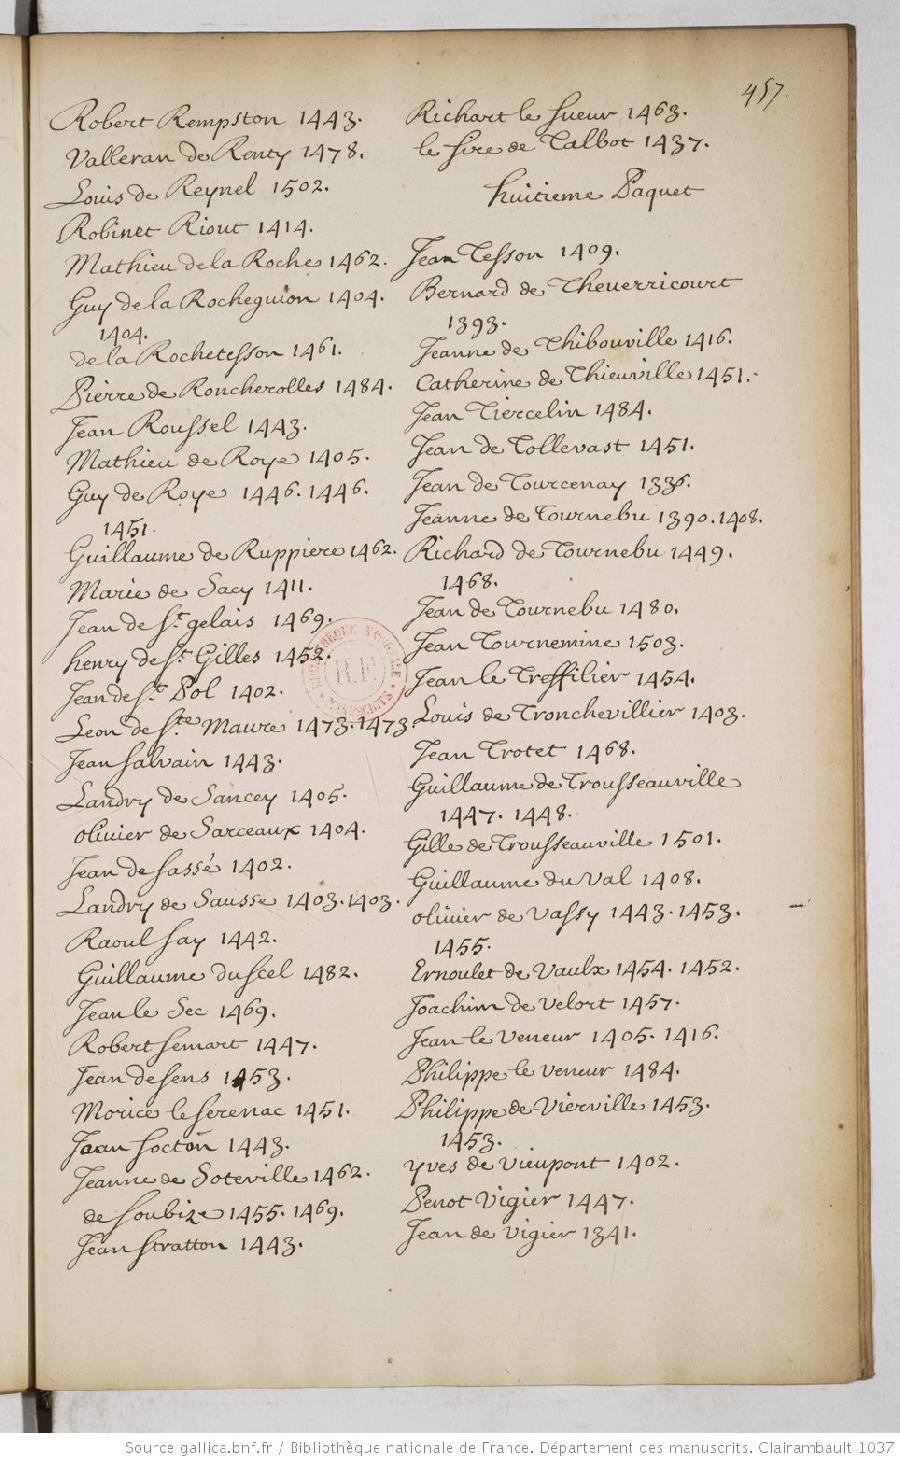 457.
Robert Rempston 1443.
Valleran de Renty 1478.
Louis de Reynel 1502.
Robinet Riout 1414.
Mathieu de la Roche 1462.
Guy de la Rocheguion 1404.
1404.
de la Rochetesson 1461.
Pierre de Roncherolles 1484.
Jean Roussel 1443.
Mathieu de Roye 1405.
Guy de Roye 1446. 1446.
1451.
Guillaume de Ruppiere 1462.
Marie de Sacy 1411.
Jean de St. gelais 1469.
henry de St. Gilles 1452.
Jean de St. Pol 1402.
Leon de Ste. Maure 1473. 1473.
Jean Salvain 1443.
Landry de Sancey 1405.
olivier de Sarceaux 1404.
Jean de Sassé 1402.
Landry de Sausse 1403. 1403.
Raoul Say 1442.
Guillaume du Scel 1482.
Jean le Sec 1469.
Robert Semart 1447.
Jean de Sens 1453.
Morice le Serenac 1451.
Jean Socton 1443.
Jeanne de Soteville 1462.
de Soubize 1455. 1469.
Jean Stratton 1443.
Richart le Sueur 1463.
le Sire de Talbot 1437.
huitieme Paquet
Jean Tesson 1409.
Bernard de Theuerricourt
1393.
Jeanne de Thibouville 1416.
Catherine de Thieuville 1451.
Jean Tiercelin 1484.
Jean de Tollevast 1451.
Jean de Tourcenay 1336.
Jeanne de Tournebu 1390. 1408.
Richard de Tournebu 1449.
1468.
Jean de Tournebu 1480.
Jean Tournemine 1503.
Jean le Treffilier 1454.
Louis de Tronchevillier 1403.
Jean Trotet 1468.
Guillaume de Trousseauville
1447. 1448.
Gille de Trousseauville 1501.
Guillaume du Val 1408.
olivier de Vassy 1443. 1453.
1455.
Ernoulet de Vaulx 1454. 1452.
Joachim de Velort 1457.
Jean le Veneur 1405. 1416.
Philippe le Veneur 1484.
Philippe de Vierville 1453.
1453.
yves de Vieupont 1402.
Penot Vigier 1447.
Jean de Vigier 1341.
R.F.
Source gallica.bnf.fr / Bibliothèque nationale de France. Département des manuscrits. Clairambault 1037